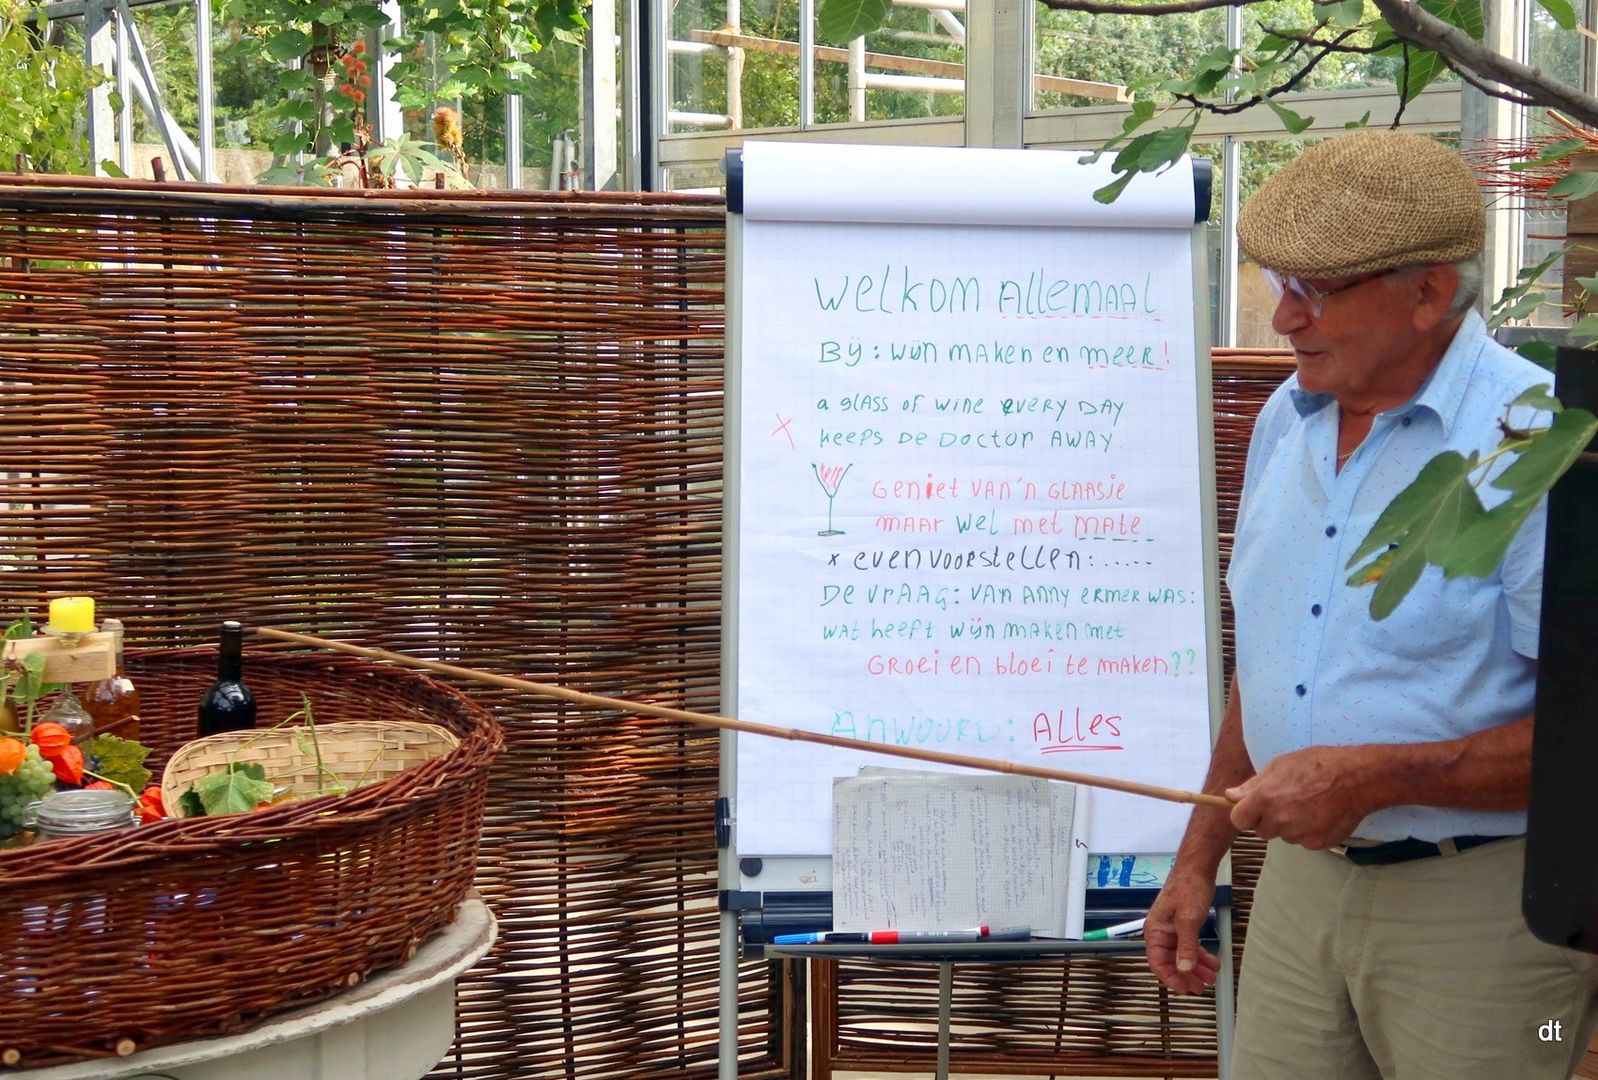 WELKOM ALLEMAAL
BIJ: WIJN MAKEN EN MEER!
a GLASS OF WINE EVERY DAY
X KEEPS DE DOCTOR AWAY
GENIET VAN'N GLAASJE
MAAR WEL MET MATE
x EVEN VOORSTELLEN:.....
DE VRAAG: VAN ANNY ERMER WAS:
WAT HEEFT WIJN MAKEN MET
GROEI EN BLOEI TE MAKEN??
ANWOORD: ALLES
dt